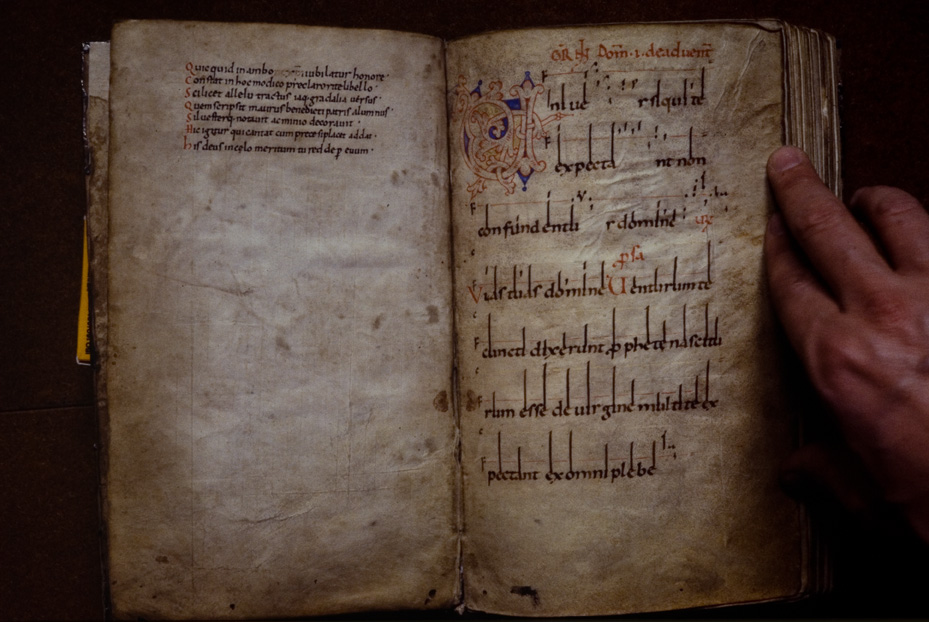 Quicquid in ambo iubilatur honore
Constat in hoc modico preclaro rite libello
Scilicet allelu tractus uaq; gradalia uersus
Quem scripsit maurus benedicti patris alumnus
Siluester q; notauit ac minio decorauit
Hic igitur qui cantat cum prece si placet addat
his deus in celo meritum tu redde p euum
GR Dom̄ i de aduent
Uniue rsi qui te
expecta nt non
confundentur domine
Vias tuas domine Uenturum te
cuncti dixerunt pphete nascitu
rum esse de uirgine multitte ex
pectant ex omni plebe